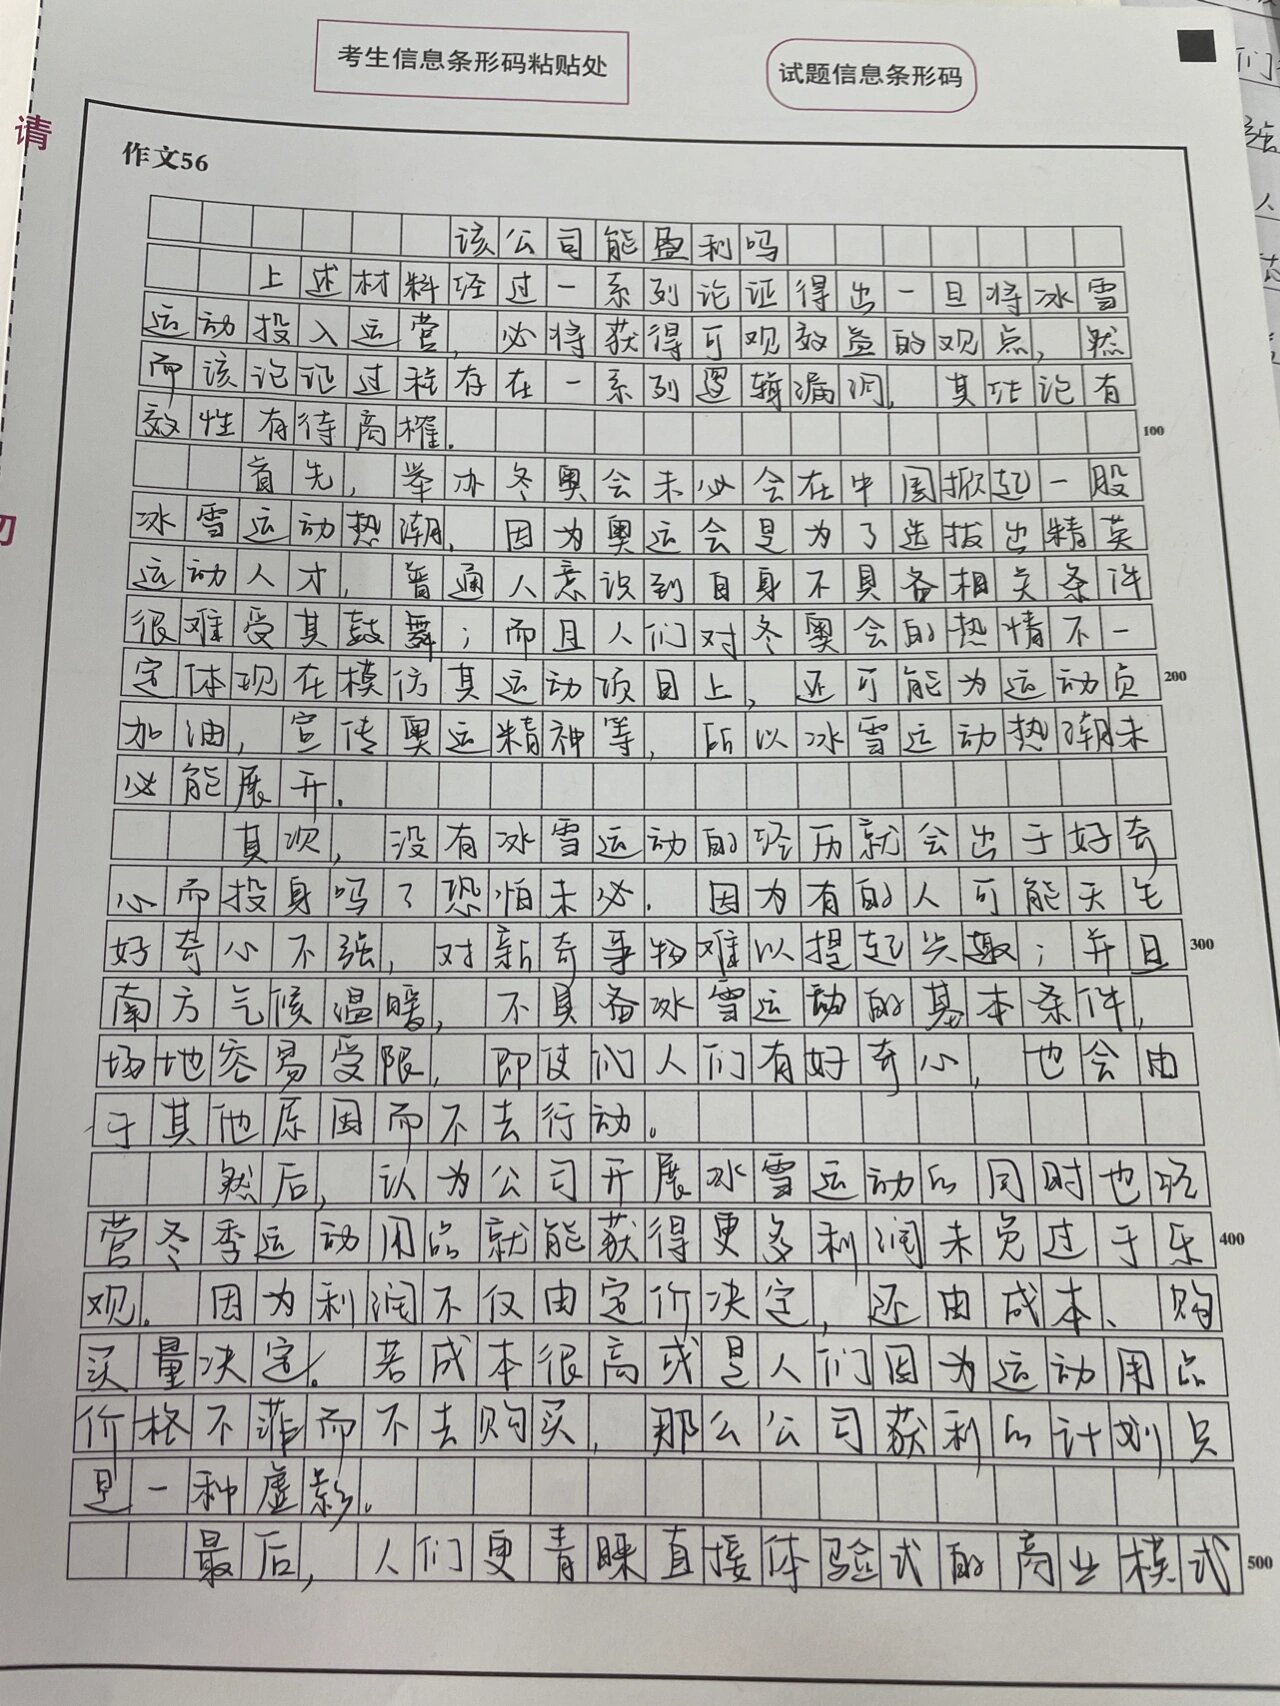 考生信息条形码粘贴处
试题信息条形码
请
作文56
该公司能盈利吗
上述材料经过一系列论证得出一旦将冰雪
运动投入运营,必将获得可观效益的观点,然
而该论证过程存在一系列逻辑漏洞,其结论有
效性有待商榷.
100
首先,举办冬奥会未必会在中国掀起一股
冰雪运动热潮.因为奥运会是为了选拔出精英
运动人才,普通人意识到自身不具备相关条件
很难受其鼓舞;而且人们对冬奥会的热情不一
定体现在模仿其运动项目上,还可能为运动员
200
加油,宣传奥运精神等,所以冰雪运动热潮未
必能展开.
其次,没有冰雪运动的经历就会出于好奇
心而投身吗?恐怕未必.因为有的人可能天生
好奇心不强,对新奇事物难以提起兴趣;并且
300
南方气候温暖,不具备冰雪运动的基本条件,
场地容易受限,即使们人们有好奇心,也会由
于其他原因而不去行动。
然后,认为公司开展冰雪运动的同时也经
营冬季运动用品就能获得更多利润未免过于乐
400
观.因为利润不仅由定价决定,还由成本、购
买量决定.若成本很高或是人们因为运动用品
价格不菲而不去购买,那么公司获利的计划只
是一种虚影.
最后,人们更青睐直接体验式的商业模式
500